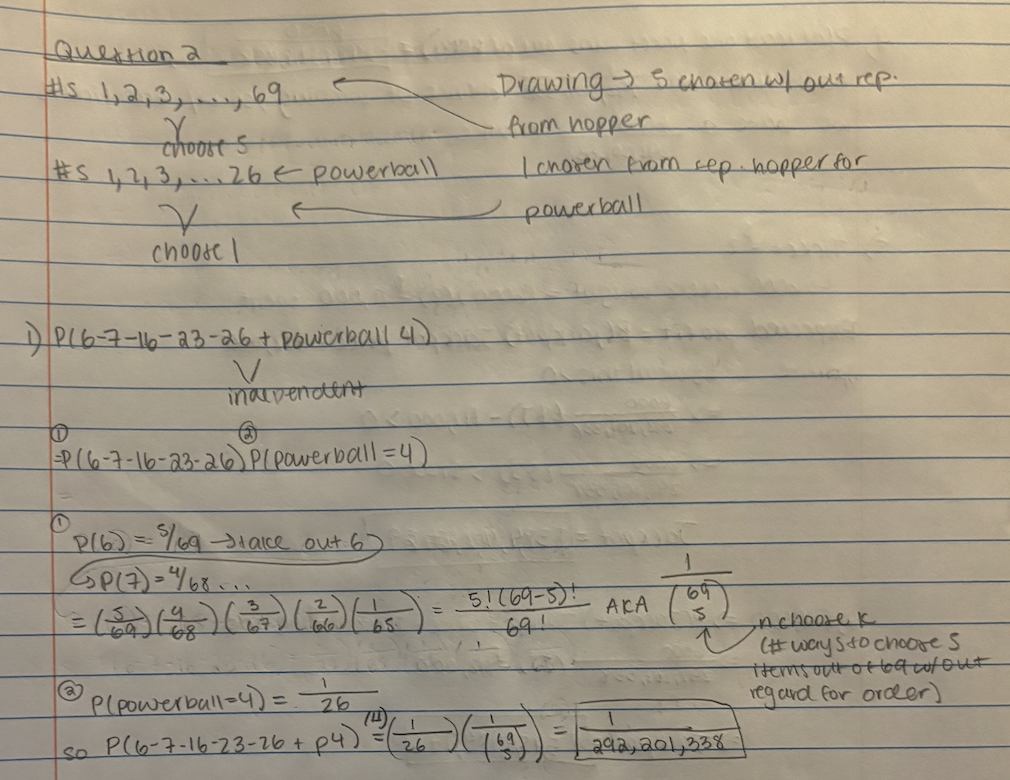 Question 2
#s 1, 2, 3, ..., 69
Drawing → 5 chosen w/ out rep.
from hopper
choose 5
#s 1, 2, 3, ... 26 ← powerball
1 chosen from sep. hopper for
powerball
choose 1
1) P(6-7-16-23-26 + powerball 4)
independent
① ②
=P(6-7-16-23-26) P(powerball = 4)
=
① P(6) = 5/69 → take out 6
↳ P(7) = 4/68 ...
= (5/69)(4/68)(3/67)(2/66)(1/65) = 5!(69-5)!/69! AKA 1/(69 5)
n choose k
(# ways to choose 5
items out of 69 w/out
regard for order)
② P(powerball = 4) = 1/26
so P(6-7-16-23-26 + p4) (⊥) = (1/26)(1/(69 5)) = 1/292,201,338